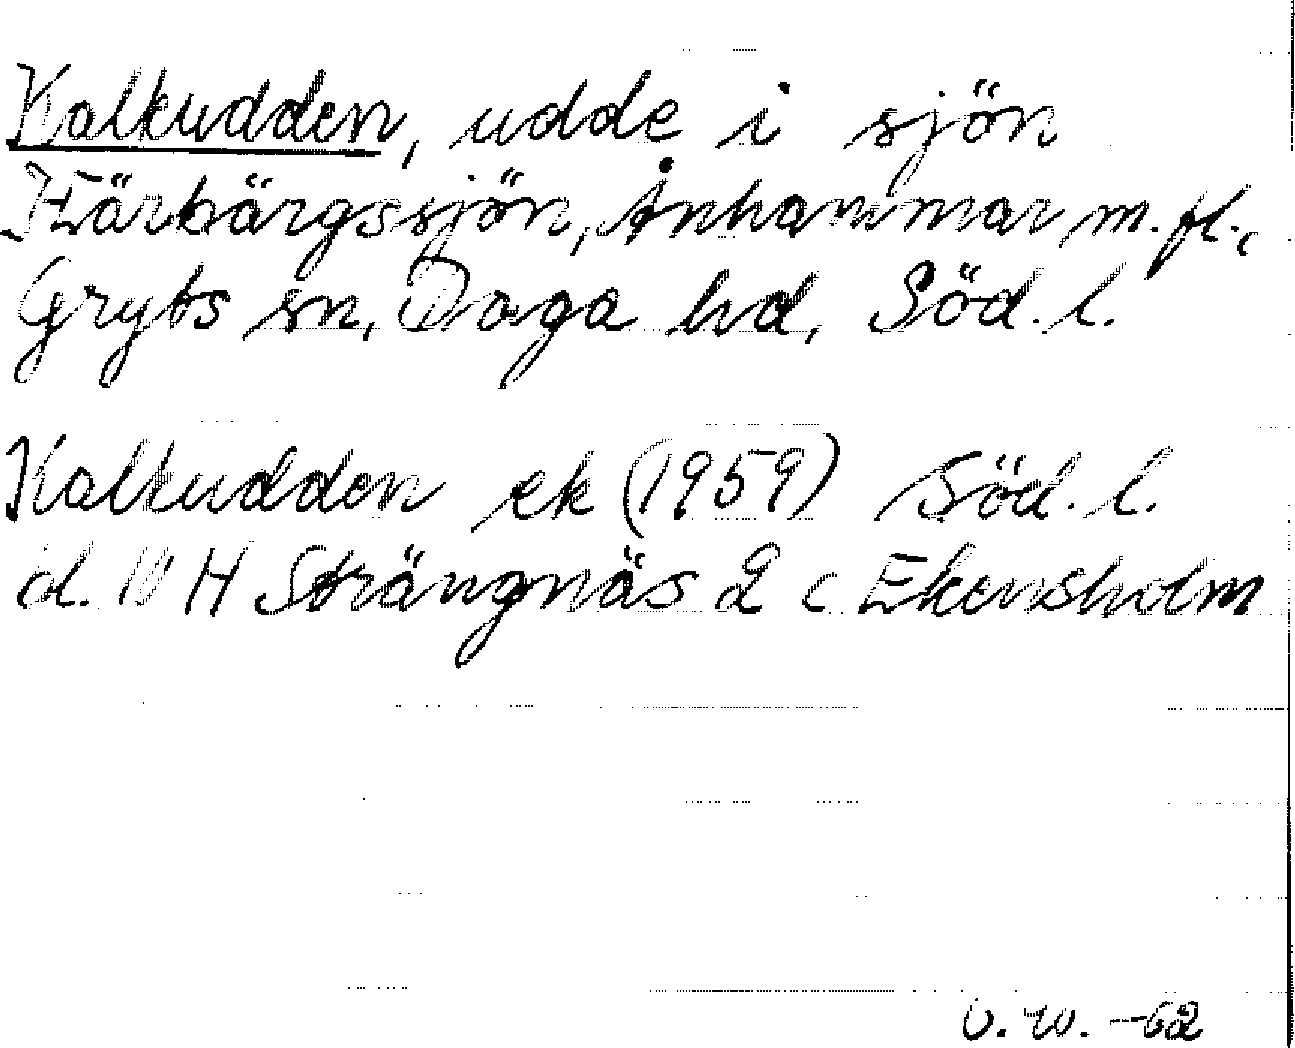 Kalkudden, udde i sjön
Härbärgssjön, Ånhammar m.fl.,
Gryts sn, Daga hd, Söd. l.
Kalkudden ek (1959) Söd. l.
id. 10 H Strängnäs 2 c Ekensholm
U. W. -62